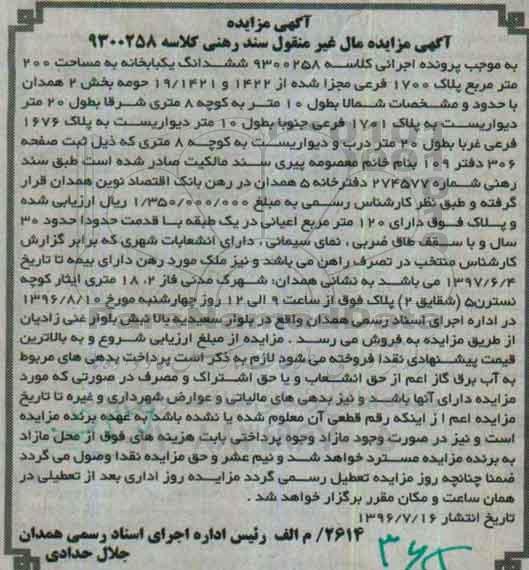 آگهی مزایده
آگهی مزایده مال غیر منقول سند رهنی کلاسه ۹۳۰۰۲۵۸
به موجب پرونده اجرائی کلاسه ۹۳۰۰۲۵۸ ششدانگ یکبابخانه به مساحت ۲۰۰
متر مربع پلاک ۱۷۰۰ فرعی مجزا شده از ۱۴۲۲ و ۱۹/۱۴۲۱ حومه بخش ۲ همدان
با حدود و مشخصات شمالا بطول ۱۰ متر به کوچه ۸ متری شرقا بطول ۲۰ متر
دیواریست به پلاک ۱۷۰۱ فرعی جنوبا بطول ۱۰ متر دیواریست به پلاک ۱۶۷۶
فرعی غربا بطول ۲۰ متر درب و دیواریست به کوچه ۸ متری که ذیل ثبت صفحه
۳۰۶ دفتر ۱۰۹ بنام خانم معصومه پیری سند مالکیت صادر شده است طبق سند
رهنی شماره ۲۷۴۵۷۷ دفترخانه ۵ همدان در رهن بانک اقتصاد نوین همدان قرار
گرفته و طبق نظر کارشناس رسمی به مبلغ ۱/۳۵۰/۰۰۰/۰۰۰ ریال ارزیابی شده
و پلاک فوق دارای ۱۲۰ متر مربع اعیانی در یک طبقه با قدمت حدودا حدود ۳۰
سال و با سقف طاق ضربی ، نمای سیمانی ، دارای انشعابات شهری که برابر گزارش
کارشناس منتخب در تصرف راهن می باشد و نیز ملک مورد رهن دارای بیمه تا تاریخ
۱۳۹۷/۶/۴ می باشد به نشانی همدان: شهرک مدنی فاز ۲، ۱۸ متری ایثار کوچه
نسترن۵ (شقایق ۲) پلاک فوق از ساعت ۹ الی ۱۲ روز چهارشنبه مورخ ۱۳۹۶/۸/۱۰
در اداره اجرای اسناد رسمی همدان واقع در بلوار سعیدیه بالا نبش بلوار غنی زادیان
از طریق مزایده به فروش می رسد . مزایده از مبلغ ارزیابی شروع و به بالاترین
قیمت پیشنهادی نقدا فروخته می شود لازم به ذکر است پرداخت بدهی های مربوط
به آب برق گاز اعم از حق انشعاب و یا حق اشتراک و مصرف در صورتی که مورد
مزایده دارای آنها باشد و نیز بدهی های مالیاتی و عوارض شهرداری و غیره تا تاریخ
مزایده اعم از اینکه رقم قطعی آن معلوم شده یا نشده باشد به عهده برنده مزایده
است و نیز در صورت وجود مازاد وجوه پرداختی بابت هزینه های فوق از محل مازاد
به برنده مزایده مسترد خواهد شد و نیم عشر و حق مزایده نقدا وصول می گردد
ضمنا چنانچه روز مزایده تعطیل رسمی گردد مزایده روز اداری بعد از تعطیلی در
همان ساعت و مکان مقرر برگزار خواهد شد .
تاریخ انتشار ۱۳۹۶/۷/۱۶
۲۶۱۴/ م الف رئیس اداره اجرای اسناد رسمی همدان
جلال حدادی